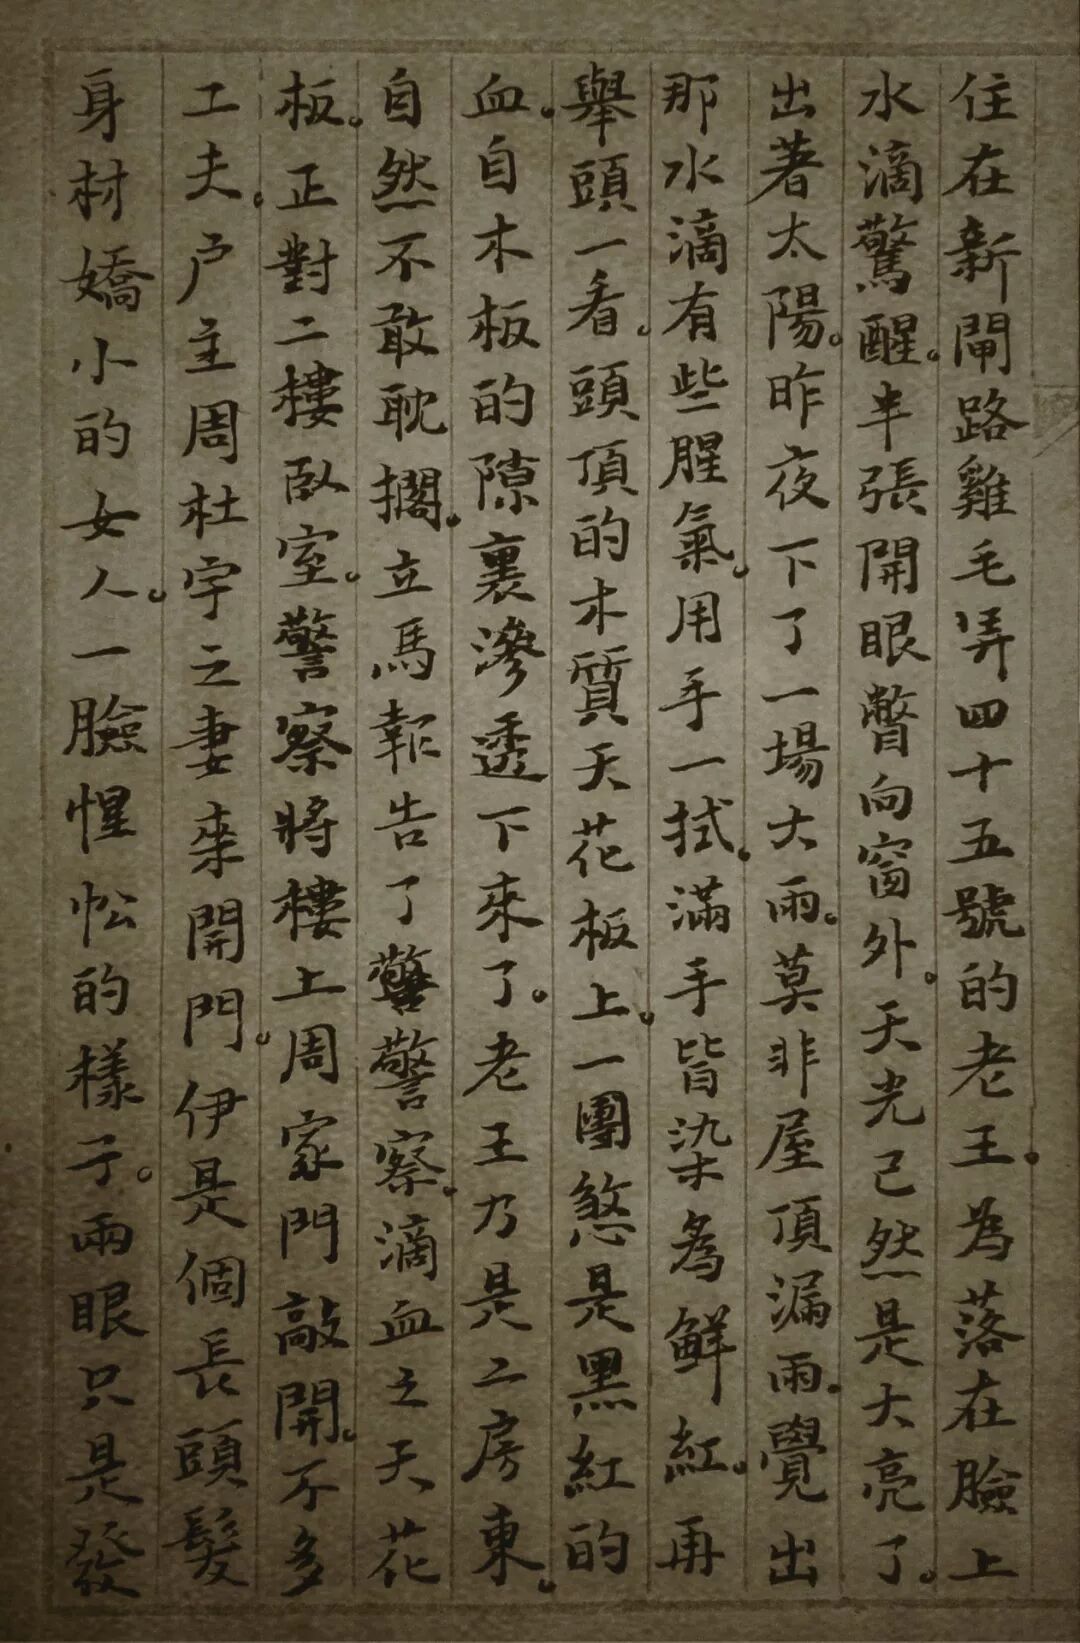 住在新閘路雞毛弄四十五號的老王。為落在臉上
水滴驚醒。半張開眼瞥向窗外。天光已然是大亮了。
出著太陽。昨夜下了一場大雨。莫非屋頂漏雨。覺出
那水滴有些腥氣。用手一拭。滿手皆染為鮮紅。再
舉頭一看。頭頂的木質天花板上。一團煞是黑紅的
血。自木板的隙裏滲透下來了。老王乃是二房東。
自然不敢耽擱。立馬報告了警警察。滴血之天花
板。正對二樓臥室。警察將樓上周家門敲開。不多
工夫。户主周杜宇之妻來開門。伊是個長頭髮
身材嬌小的女人。一臉惺忪的樣子。兩眼只是發